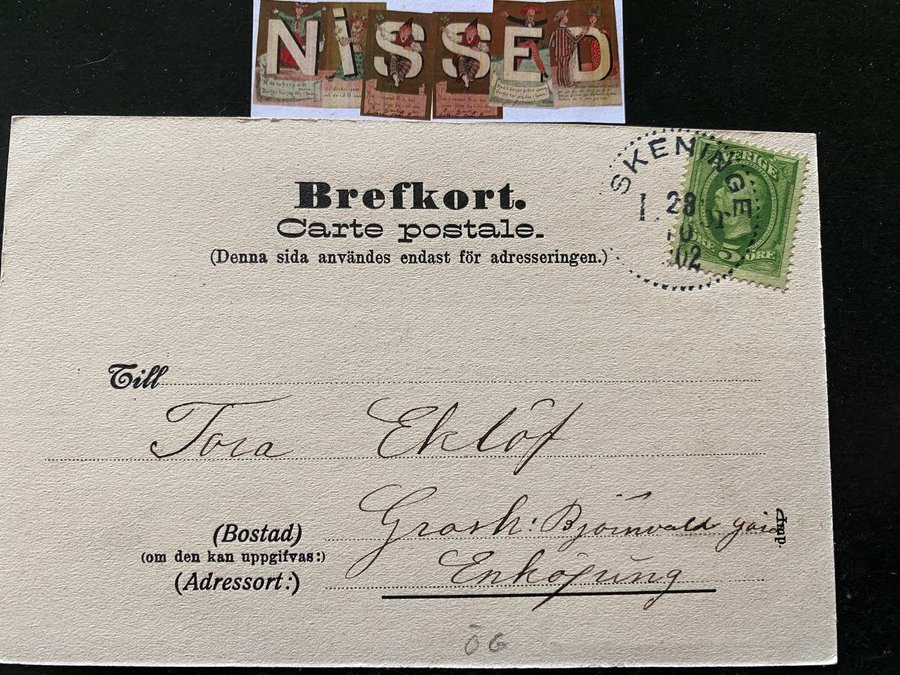 NiSSED
Brefkort.
Carte postale.
(Denna sida användes endast för adresseringen.)
SKENINGE
28
10
02
SVERIGE
5 ÖRE
Till
Tora Eklöf
Grosh: Björnvald
(Bostad)
(om den kan uppgifvas:)
(Adressort:)
Enköping
ÖG